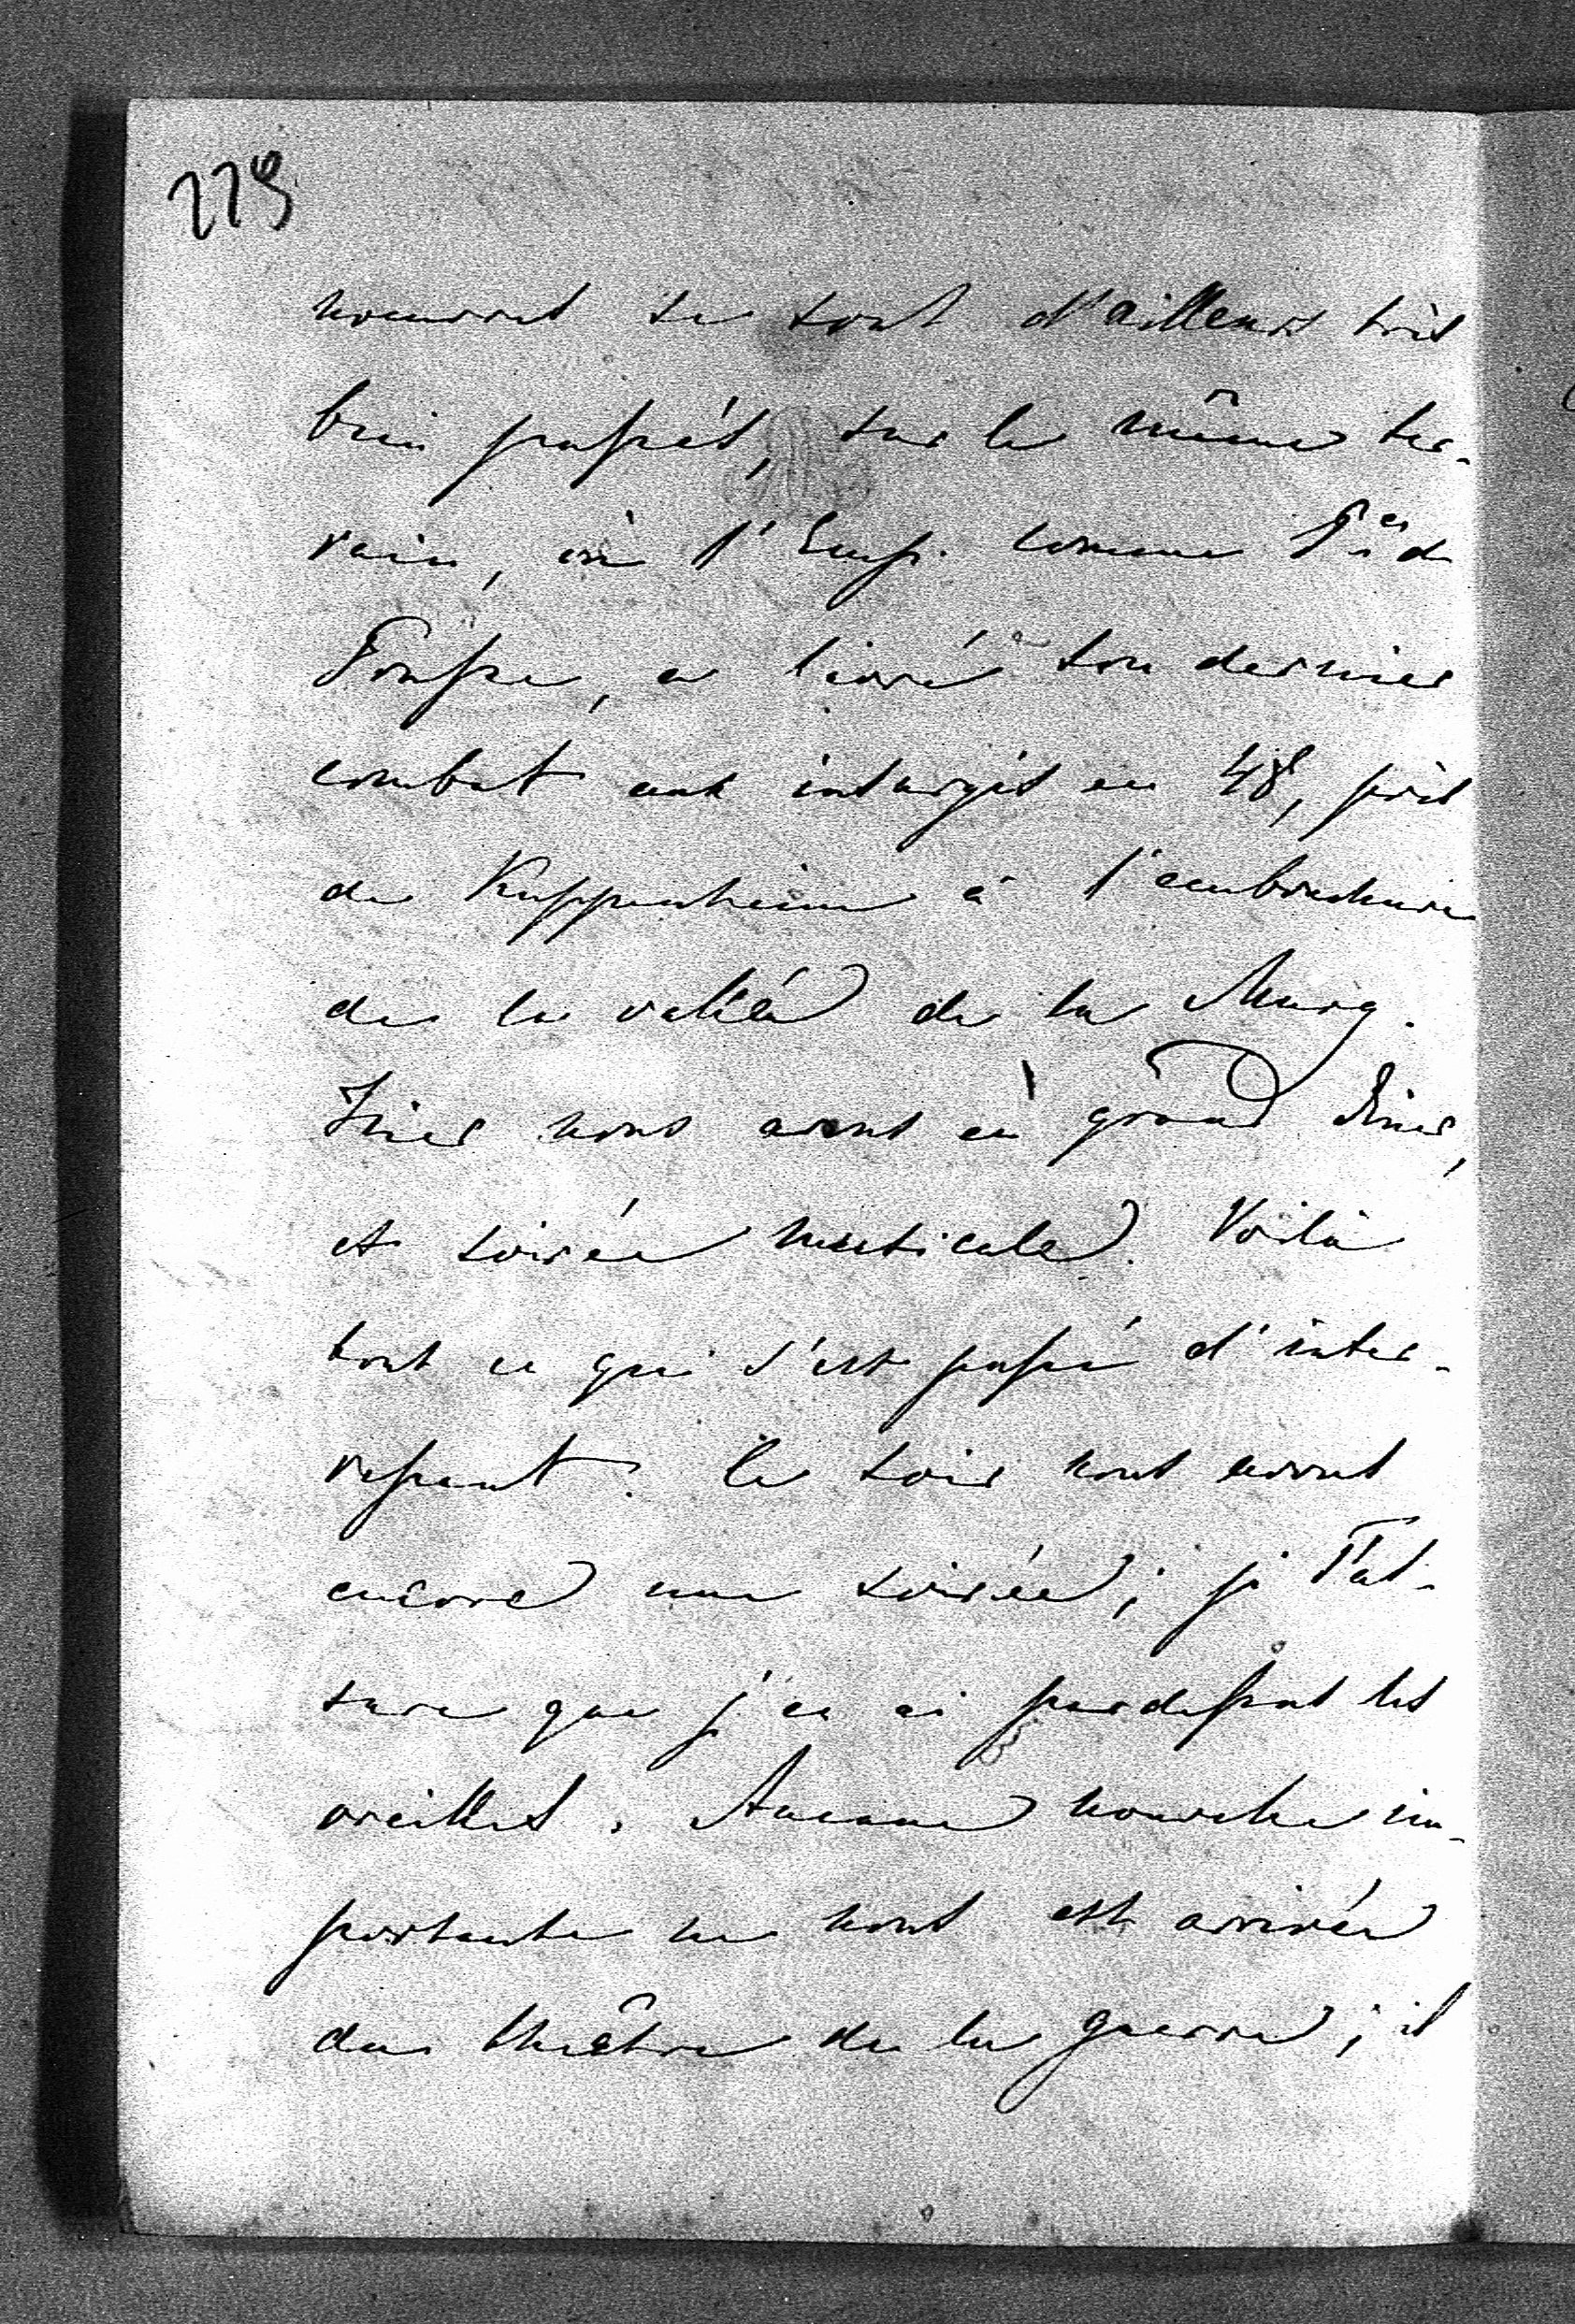 229
se sont d'ailleurs très
bien passés, sur le même ter-
rain, où l'Emp. comme Pce de
Prusse, a livré son dernier
combat aux insurgés en 48, près
de Kuppenheim à l'embouchure
de la vallée de la Murg.
Hier nous avons eu grand dîner,
et soirée musicale. Voilà
tout ce qui s'est passé d'inter-
ressant. Ce soir nous avons
encore une soirée; je t'as-
sure que j'en ai pardessus les
oreilles. Aucune nouvelle im-
portante ne nous est arrivée
du théâtre de la guerre; il